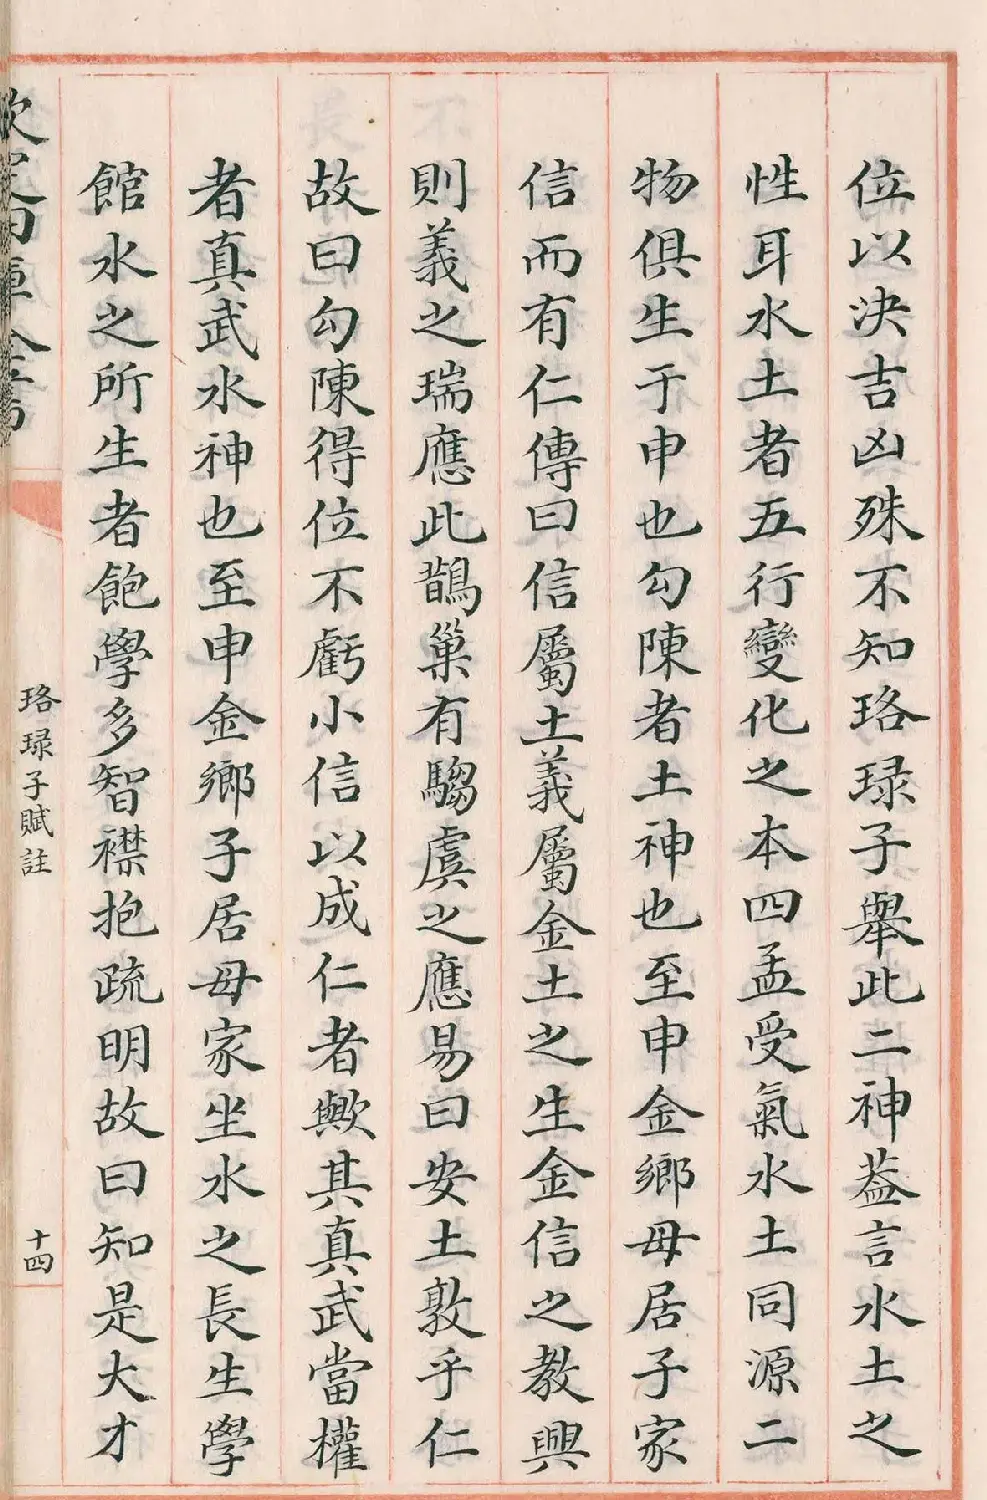 位以決吉凶殊不知珞琭子舉此二神葢言水土之
性耳水土者五行變化之本四孟受氣水土同源二
物俱生于申也勾陳者土神也至申金鄉母居子家
信而有仁傳曰信屬土義屬金土之生金信之教興
則義之瑞應此鵲巢有騶虞之應易曰安土敦乎仁
故曰勾陳得位不虧小信以成仁者歟其真武當權
者真武水神也至申金鄉子居母家坐水之長生學
館水之所生者飽學多智襟抱疏明故曰知是大才
欽定四庫全書
珞琭子賦註
十四